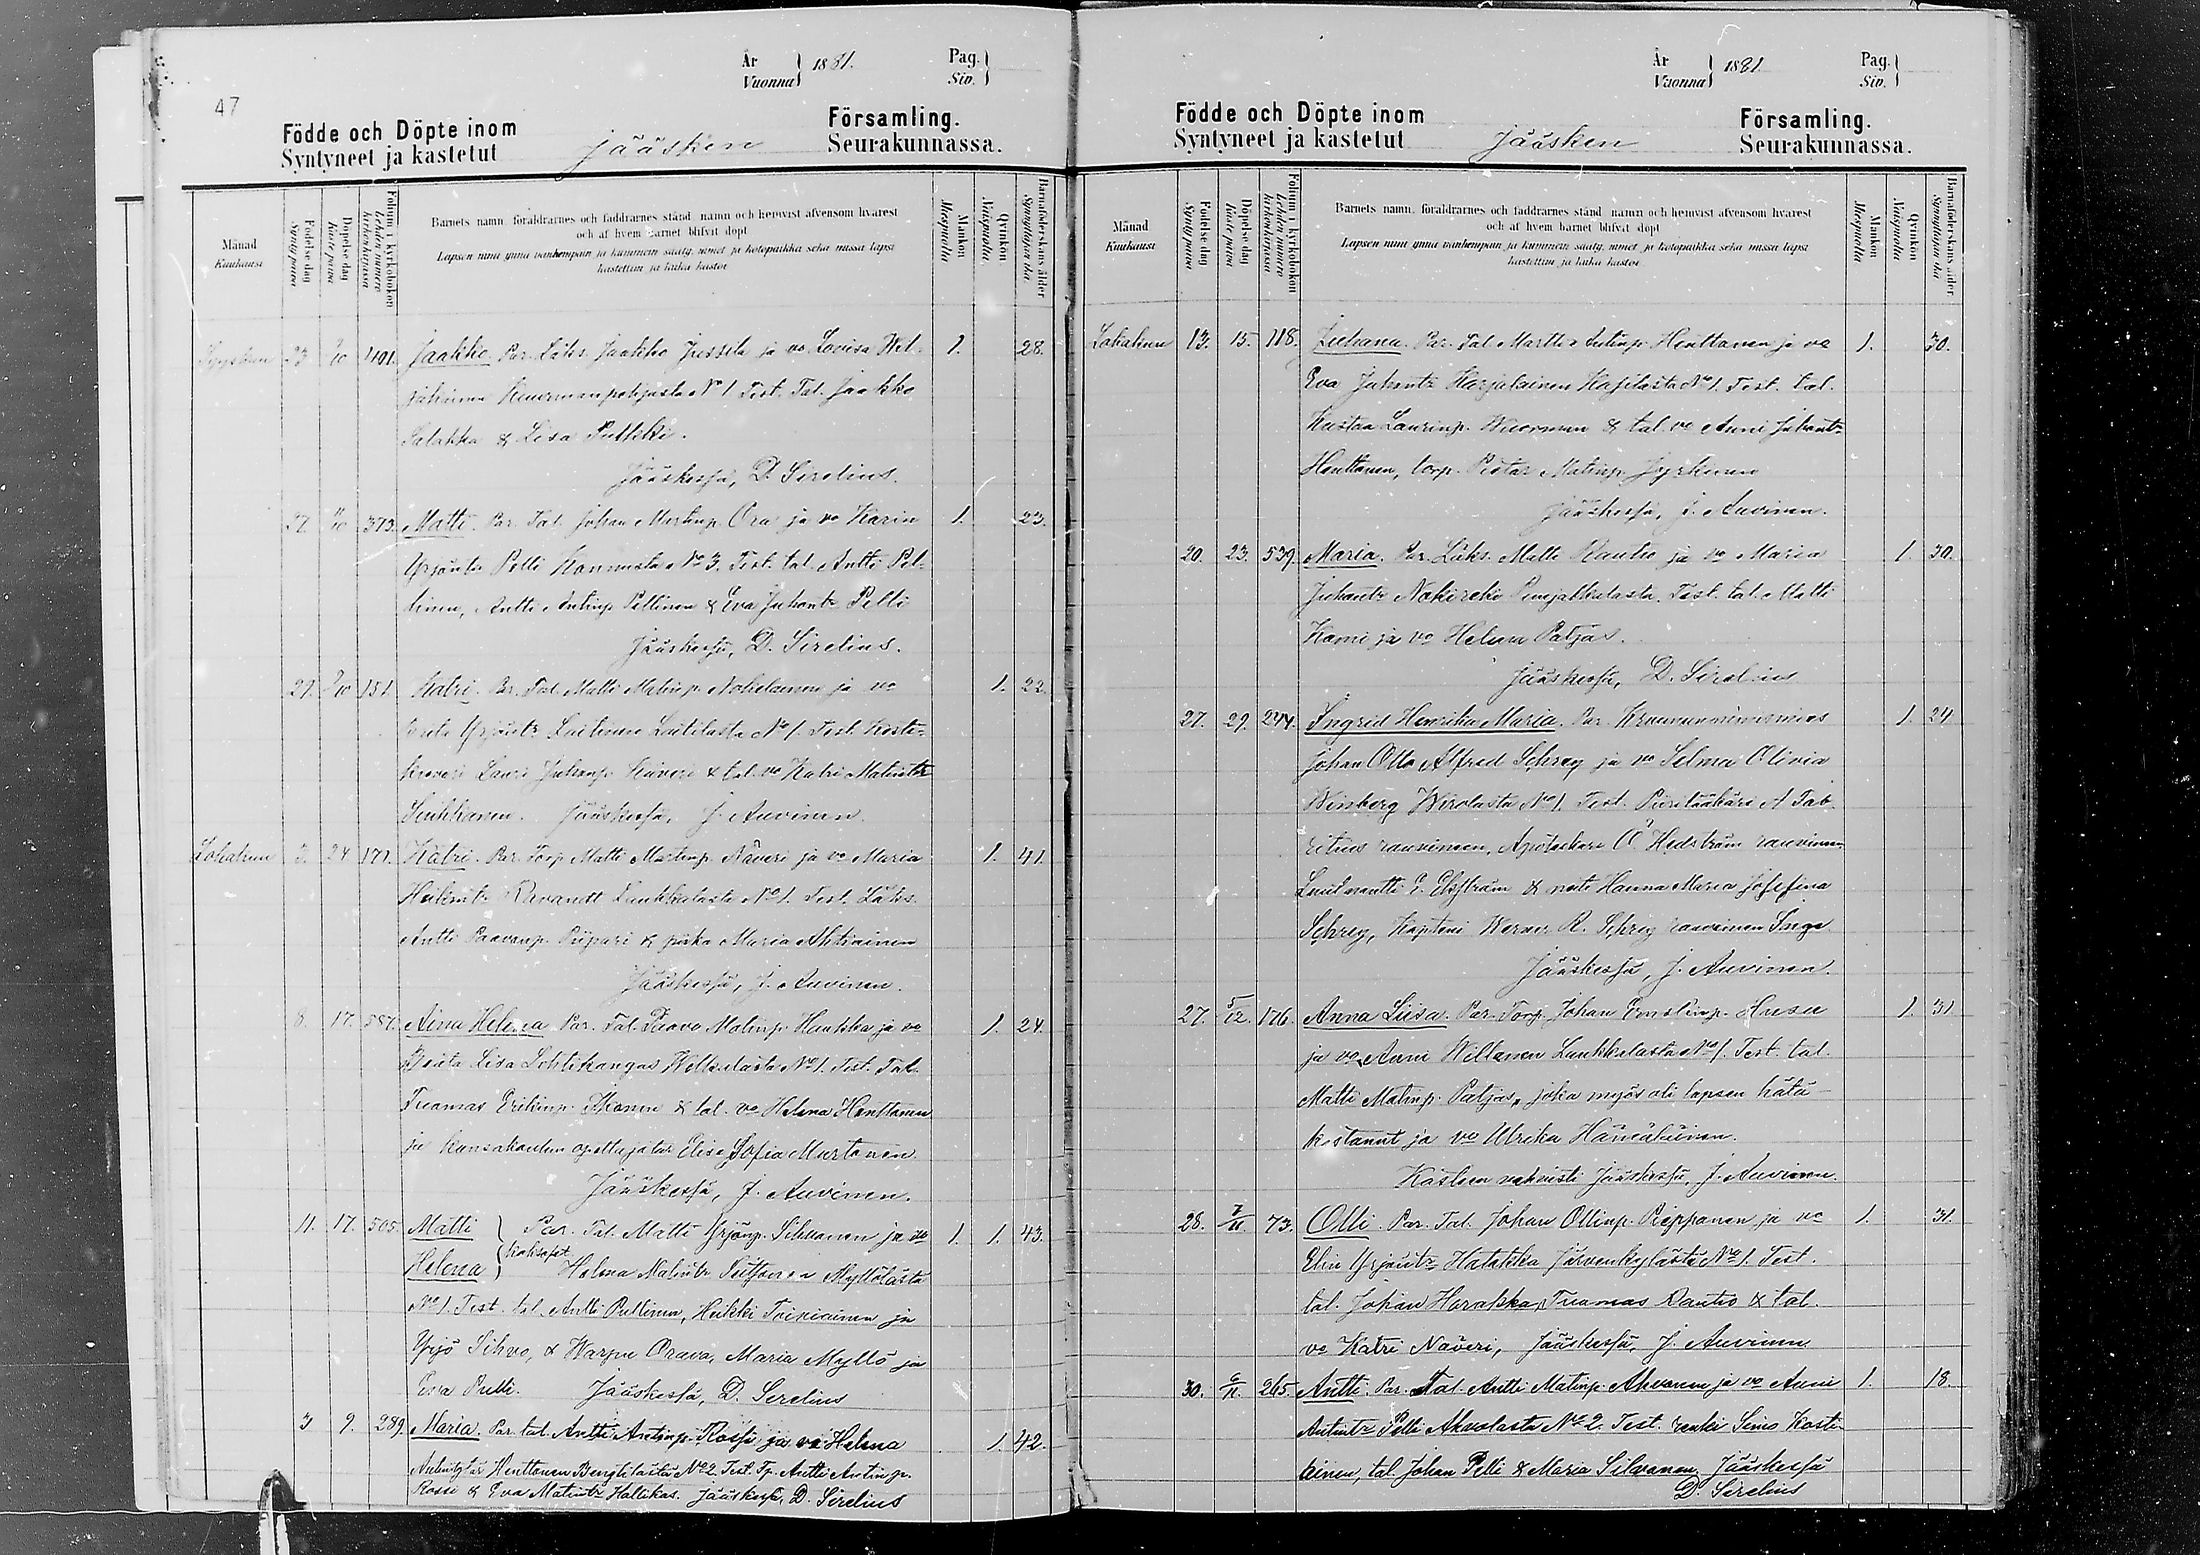 47
År
Vuonna } 1881.
Pag.
Siv.
Födde och Döpte inom
Syntyneet ja kastetut Jääsken
Församling.
Seurakunnassa.
Månad
Kuukausi
Födelse dag
Synty päivä
Döpelse dag
Kaste päivä
Folium i kyrkoboken
Lehden numero kirkonkirjassa
Barnets namn, föräldrarnes och faddrarnes stånd namn och hemvist äfvensom hvarest
och af hvem barnet blifvit döpt
Lapsen nimi ynnä vanhempain ja kummein sääty, nimet ja kotopaikka sekä missä lapsi
kastettiin ja kuka kastoi
Mankön
Miespuolia
Qvinkön
Naispuolia
Barnaföderskans ålder
Synnyttäjän ikä
Syyskuu 401. Jaakko. Par. Läks. Jaakko Jussila ja vo Lovisa
No 1 Test. Tal. Jaakko 1. 28.
Salakka & Lisa
Jääskessä, D. Sirelius.
27. 373. Matti. Par. Tal. Johan Matinp. Ora ja vo Karin 1. 23.
Yrjöntr Pelli No 3. Test. tal. Antti Pel-
linen, Antti Antinp. Pellinen & Eva Juhantr Pelli
Jääskessä, D. Sirelius.
29. 151. Katri. Par. Tal. Matti Matinp. ja vo 1. 22.
Yrjöntr Laitinen Laitilasta No 1. Test.
Lauri Juhanp. & tal. vo Katri Matintr
Jääskessä, J. Auvinen.
Lokakuu 24 171. Katri. Par. Torp. Matti Martinp. Näveri ja vo Maria 1. 41.
Heikintr Ravantti Laukkalasta No 1. Test. Läks.
Antti Paavonp. Piipari & piika Maria Ahtiainen
Jääskessä, J. Auvinen.
8. 17. 587. Aina Helena Par. Tal. Paavo Matinp. Haukka ja vo 1. 24.
Lisa No 1. Test. Tal.
Tuomas Erikinp. Ikonen & tal. vo Helena Henttonen
ja kansakoulun opettajatar Elisa Sofia Murtonen.
Jääskessä, J. Auvinen.
11. 17. 505. Matti } Par. Tal. Matti Yrjönp. Sihvonen ja vo 1. 1. 43.
Helena } kaksoset Helena Matintr Myllölästä
No 1. Test. tal. Antti Pullinen, Heikki Toiviainen ja
Yrjö Sihvo, & Warpu Orava, Maria Myllö ja
Eva Pelli. Jääskessä, D. Sirelius
3 9. 289. Maria. Par. tal. Antti Antinp. Rossi ja vo Helena 1. 42.
Henttonen No 2 Test. Tp. Antti Antinp.
Rossi & Eva Matintr Hallikas. Jääskessä, D. Sirelius
År
Vuonna } 1881
Pag.
Siv.
Födde och Döpte inom
Syntyneet ja kastetut Jääsken
Församling.
Seurakunnassa.
Månad
Kuukausi
Födelse dag
Synty päivä
Döpelse dag
Kaste päivä
Folium i kyrkoboken
Lehden numero kirkonkirjassa
Barnets namn, föräldrarnes och faddrarnes stånd namn och hemvist äfvensom hvarest
och af hvem barnet blifvit döpt
Lapsen nimi ynnä vanhempain ja kummein sääty, nimet ja kotopaikka sekä missä lapsi
kastettiin ja kuka kastoi
Mankön
Miespuolia
Qvinkön
Naispuolia
Barnaföderskans ålder
Synnyttäjän ikä
Lokakuu 13. 15. 118. Juhana. Par. Tal. Martti Antinp. Henttonen ja vo 1. 30.
Eva Juhantr Harjalainen No 1. Test. tal.
Kustaa Laurinp. Wuorman & tal. vo Anni Juhantr
Henttonen, torp. Pietar Matinp. Jyrkinen
Jääskessä, J. Auvinen.
20. 23. 539. Maria. Par. Läks. Matti Rautio ja vo Maria 1. 30.
Juhantr Test. tal. Matti
ja vo Helena Patjas.
Jääskessä, D. Sirelius
27. 29. 244. Ingrid Henrika Maria. Par. Kruununnimismies 1. 24
Johan Otto Alfred Schrey ja vo Selma Olivia
Winberg Wirolasta No 1. Test. Piirilääkäri A Fab-
ritius rouvineen, Apotekari O Hedström rouvineen
E. Ekström & neiti Hanna Maria Josefina
Schrey, Kapteni Werner R. Schrey rouvineen Inga
Jääskessä, J. Auvinen.
27. 5/12. 176. Anna Liisa. Par. Torp. Johan Ernstinp. Husu 1. 31
ja vo Anni Willanen Laukkalasta No 1. Test. tal.
Matti Matinp. Patjas, joka myös oli lapsen hätä-
kastanut ja vo Ulrika Hämäläinen.
Kasteen vahvisti Jääskessä, J. Auvinen.
28. 7/11. 73. Olli. Par. Tal. Johan Ollinp. Pieppanen ja vo 1. 31.
Elin Yrjöntr Hatakka Järvenkylästä No 1. Test.
tal. Johan Harakka, Tuomas Rautio & tal.
vo Katri Näveri, Jääskessä, J. Auvinen
30. 6/11. 265. Antti. Par. Tal. Antti Matinp. Ahvonen ja vo Anni 1. 18.
Antintr Pelli Ahvolasta No 2. Test. renki Simo Kosti-
ainen, tal. Johan Pelli & Maria Silvonen Jääskessä
D. Sirelius